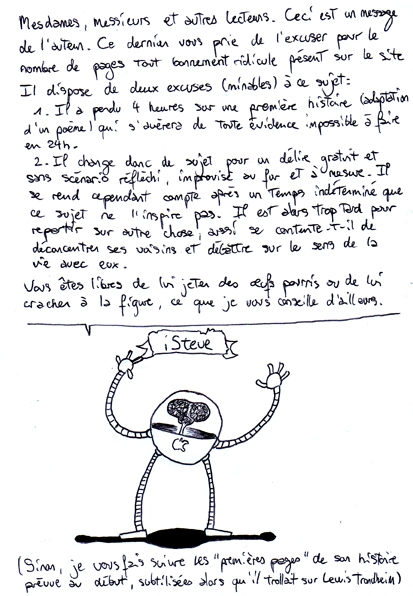 Mesdames, messieurs et autres lecteurs. Ceci est un message
de l'auteur. Ce dernier vous prie de l'excuser pour le
nombre de pages tout bonnement ridicule présent sur le site
Il dispose de deux excuses (minables) à ce sujet:
1. Il a perdu 4 heures sur une première histoire (adaptation
d'un poème) qui s'avèrera de toute évidence impossible à faire
en 24h.
2. Il change donc de sujet pour un délire gratuit et
sans scénario réfléchi, improvisé au fur et à mesure. Il
se rend cependant compte après un temps indéterminé que
ce sujet ne l'inspire pas. Il est alors trop tard pour
repartir sur autre chose, aussi se contente-t-il de
déconcentrer ses voisins et débattre sur le sens de la
vie avec eux.
Vous êtes libres de lui jeter des œufs pourris ou de lui
cracher à la figure, ce que je vous conseille d'ailleurs.
iSteve
(Sinon, je vous fais suivre les "premières pages" de son histoire
prévue au début, subtilisées alors qu'il trollait sur Lewis Trondheim)